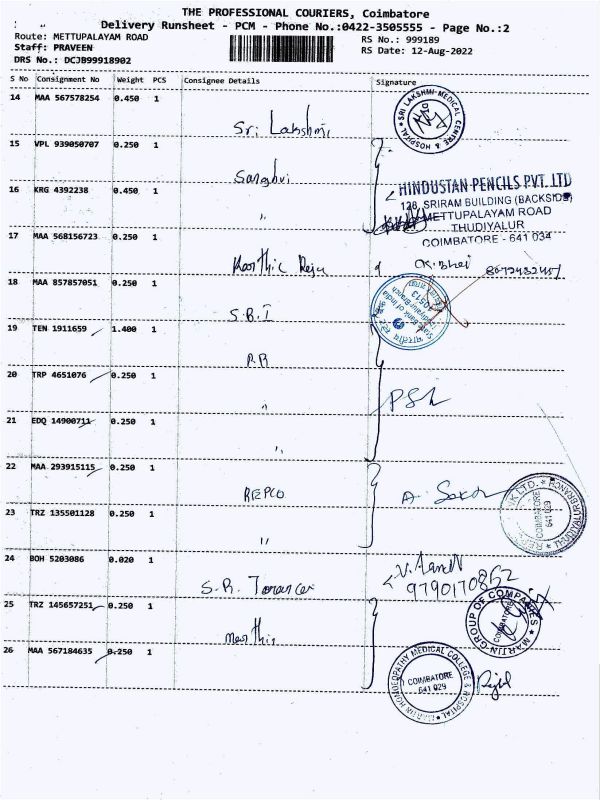 THE PROFESSIONAL COURIERS, Coimbatore
Delivery Runsheet - PCM - Phone No.:0422-3505555 - Page No.:2
Route: METTUPALAYAM ROAD
RS No.: 999189
Staff: PRAVEEN
RS Date: 12-Aug-2022
DRS No.: DCJB99918902
S No Consignment No Weight PCS Consignee Details Signature
14 MAA 567578254 0.450 1
Sri Lakshmi
SRI LAKSHMI MEDICAL CENTRE & HOSPITAL
15 VPL 939050707 0.250 1
Sanghvi
16 KRG 4392238 0.450 1
"
HINDUSTAN PENCILS PVT. LTD
128, SRIRAM BUILDING (BACKSIDE)
METTUPALAYAM ROAD
THUDIYALUR
COIMBATORE - 641 034
17 MAA 568156723 0.250 1
Karthic Raju
18 MAA 857857051 0.250 1
S.B.I
State Bank of India
19 TEN 1911659 1.400 1
RR
20 TRP 4651076 0.250 1
"
21 EDQ 14900711 0.250 1
"
22 MAA 293915115 0.250 1
REPCO
COIMBATORE
641 029
23 TRZ 135501128 0.250 1
"
24 BOH 5203086 0.020 1
S.R.
9790170852
25 TRZ 145657251 0.250 1
Martin
MARTIN GROUP OF COMPANIES
COIMBATORE
26 MAA 567184635 0.250 1
MARTIN HOMOEOPATHY MEDICAL COLLEGE & HOSPITAL
COIMBATORE
641 029